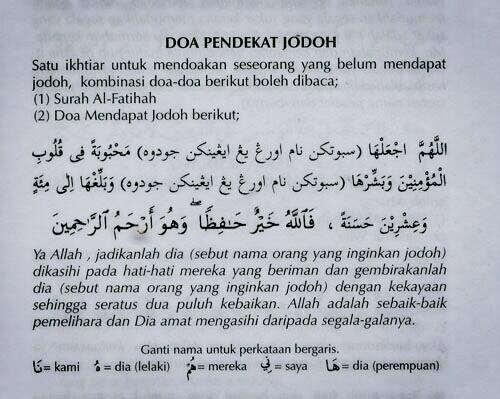 DOA PENDEKAT JODOH
Satu ikhtiar untuk mendoakan seseorang yang belum mendapat
jodoh, kombinasi doa-doa berikut boleh dibaca;
(1) Surah Al-Fatihah
(2) Doa Mendapat Jodoh berikut;
اللَّهُمَّ اجْعَلْهَا (سبوتكن نام اورڠ يڠ ايڠينكن جودوه) مَحْبُوبَةً فِى قُلُوبِ
الْمُؤْمِنِيْنَ وَبَشِّرْهَا (سبوتكن نام اورڠ يڠ ايڠينكن جودوه) وَبَلِّغْهَا اِلَى مِئَةٍ
وَعِشْرِيْنَ حَسَنَةً ، فَٱللَّهُ خَيْرٌ حَـٰفِظًا ۖ وَهُوَ أَرْحَمُ ٱلرَّٰحِمِينَ
Ya Allah , jadikanlah dia (sebut nama orang yang inginkan jodoh)
dikasihi pada hati-hati mereka yang beriman dan gembirakanlah
dia (sebut nama orang yang inginkan jodoh) dengan kekayaan
sehingga seratus dua puluh kebaikan. Allah adalah sebaik-baik
pemelihara dan Dia amat mengasihi daripada segala-galanya.
Ganti nama untuk perkataan bergaris.
نَا= kami هُ = dia (lelaki) هُمْ= mereka نِي = saya هَا = dia (perempuan)